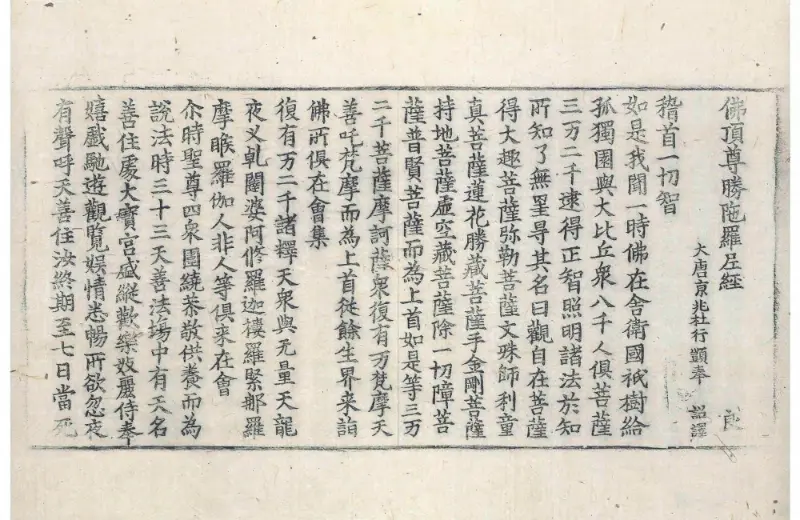 佛頂尊勝陁羅尼經
大唐京兆杜行顗奉 詔譯
稽首一切智
如是我聞一時佛在舍衛國祇樹給
孤獨園與大比丘衆八千人俱菩薩
三万二千逮得正智照明諸法於知
所知了無罣㝵其名曰觀自在菩薩
得大趣菩薩弥勒菩薩文殊師利童
真菩薩蓮花勝藏菩薩手金剛菩薩
持地菩薩虛空藏菩薩除一切障菩
薩普賢菩薩而為上首如是等三万
二千菩薩摩訶薩衆復有万梵摩天
善吒梵摩而為上首從餘生界来詣
佛所俱在會集
復有万二千諸釋天衆與无量天龍
夜叉乹闥婆阿修羅迦樓羅緊那羅
摩睺羅伽人非人等俱来在會
尒時聖尊四衆圍繞恭敬供養而為
說法時三十三天善法場中有天名
善住處大寶宮盛縱歡樂妓麗侍奉
嬉戲馳遊觀覽娛情悉暢所欲忽夜
有聲呼天善住汝終期至七日當死